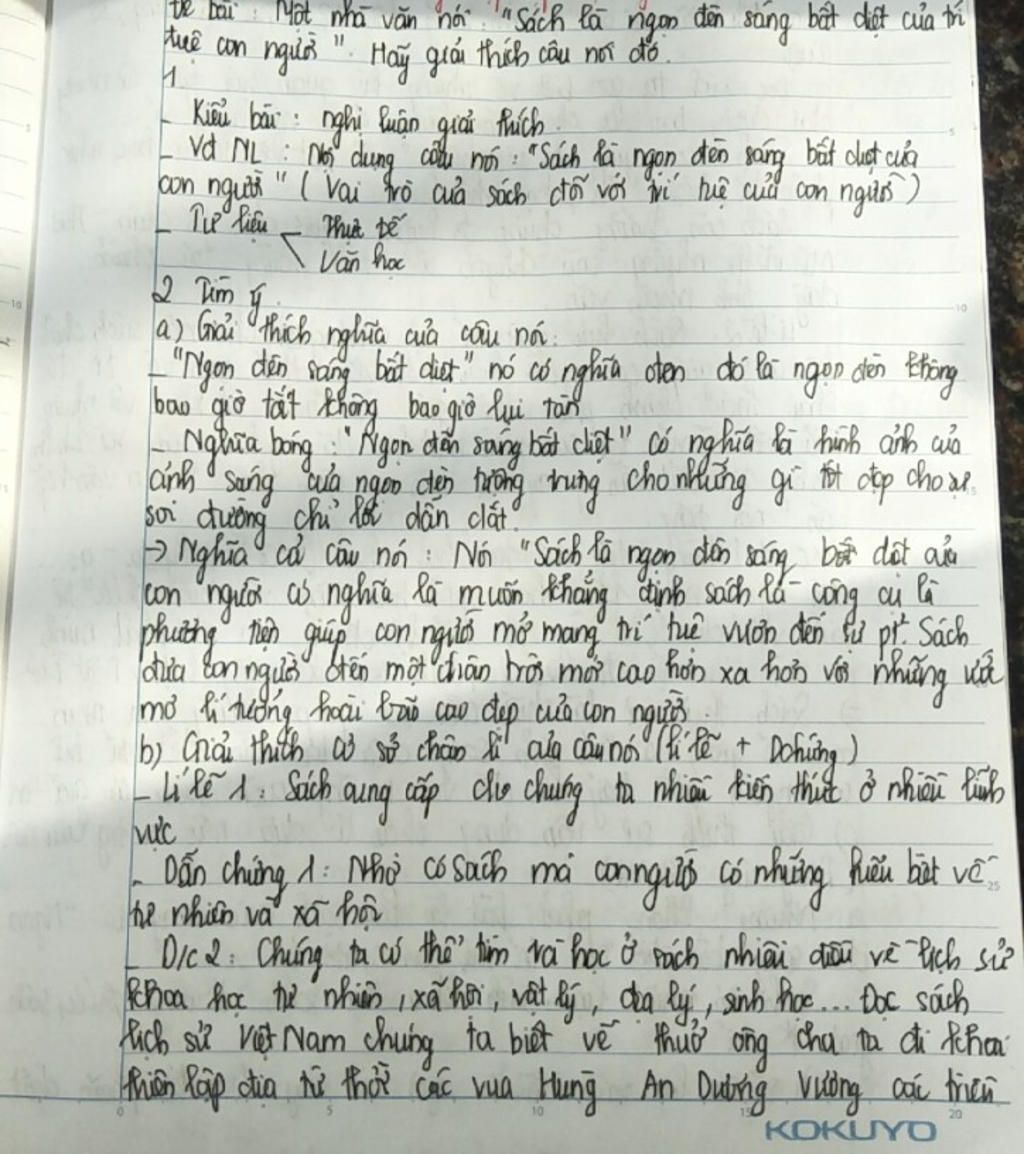 Đề bài : Một nhà văn nói : "Sách là ngọn đèn sáng bất diệt của trí
tuệ con người". Hãy giải thích câu nói đó.
1
- Kiểu bài : nghị luận giải thích
- Vđ NL : Nội dung câu nói : "Sách là ngọn đèn sáng bất diệt của
con người" ( Vai trò của sách đối với trí tuệ của con người )
- Tư liệu - Thực tế
Văn học
2 Tìm ý
a) Giải thích nghĩa của câu nói :
- "Ngọn đèn sáng bất diệt" nó có nghĩa đen đó là ngọn đèn không
bao giờ tắt không bao giờ lụi tàn
- Nghĩa bóng : "Ngọn đèn sáng bất diệt" có nghĩa là hình ảnh của
ánh sáng của ngọn đèn tượng trưng cho những gì tốt đẹp cho sự
soi đường chỉ lối dẫn dắt.
-> Nghĩa cả câu nói : Nói "Sách là ngọn đèn sáng bất diệt của
con người có nghĩa là muốn khẳng định sách là công cụ là
phương tiện giúp con người mở mang trí tuệ vươn đến sự pt². Sách
đưa con người đến một chân trời mới cao hơn xa hơn với những ước
mơ lí tưởng hoài bão cao đẹp của con người.
b) Giải thích cơ sở chân lí của câu nói (lí lẽ + Dchứng)
- Lí lẽ 1 : Sách cung cấp cho chúng ta nhiều kiến thức ở nhiều lĩnh
vực
- Dẫn chứng 1 : Nhờ có sách mà con người có những hiểu biết về
tự nhiên và xã hội
- D/c 2 : Chúng ta có thể tìm và học ở sách nhiều điều về lịch sử
khoa học tự nhiên, xã hội, vật lý, địa lý, sinh học... Đọc sách
lịch sử Việt Nam chúng ta biết về thuở ông cha ta đi khai
thiên lập địa từ thời các vua Hùng An Dương Vương các triều
0 5 10 15 20
KOKUYO